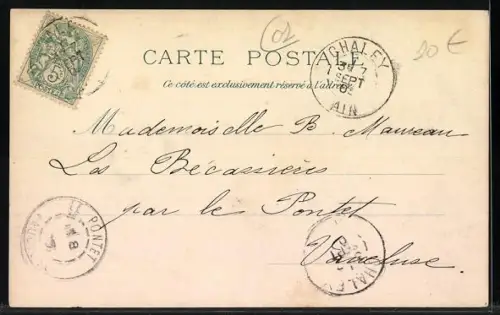 02
20 €
CARTE POSTALE
Ce côté est exclusivement réservé à l'adresse
CHALEY
SEPT
AIN
5
Mademoiselle B. Maureau
Les Bécassières
par le Pontet
Vaucluse
LE PONTET
CHALEY